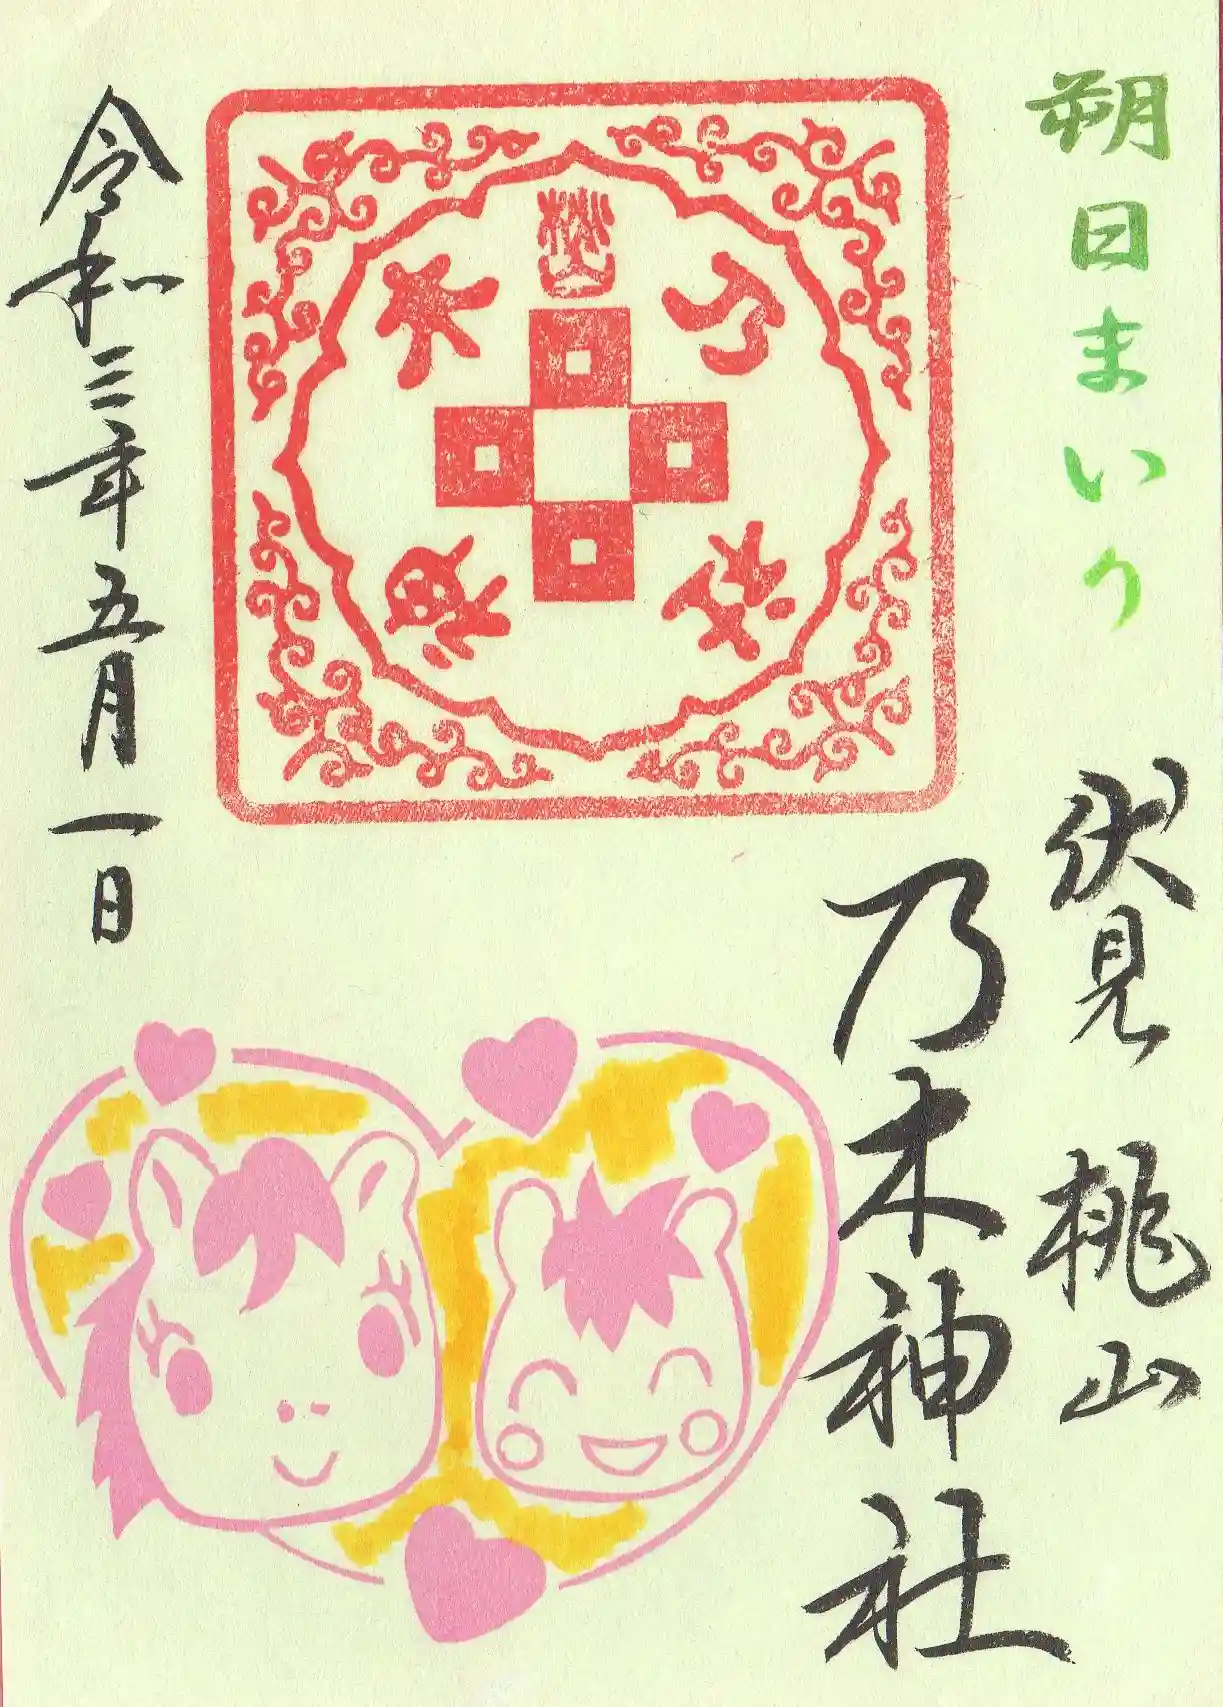 朔日まいり
伏見 桃山
乃木神社
令和三年五月一日